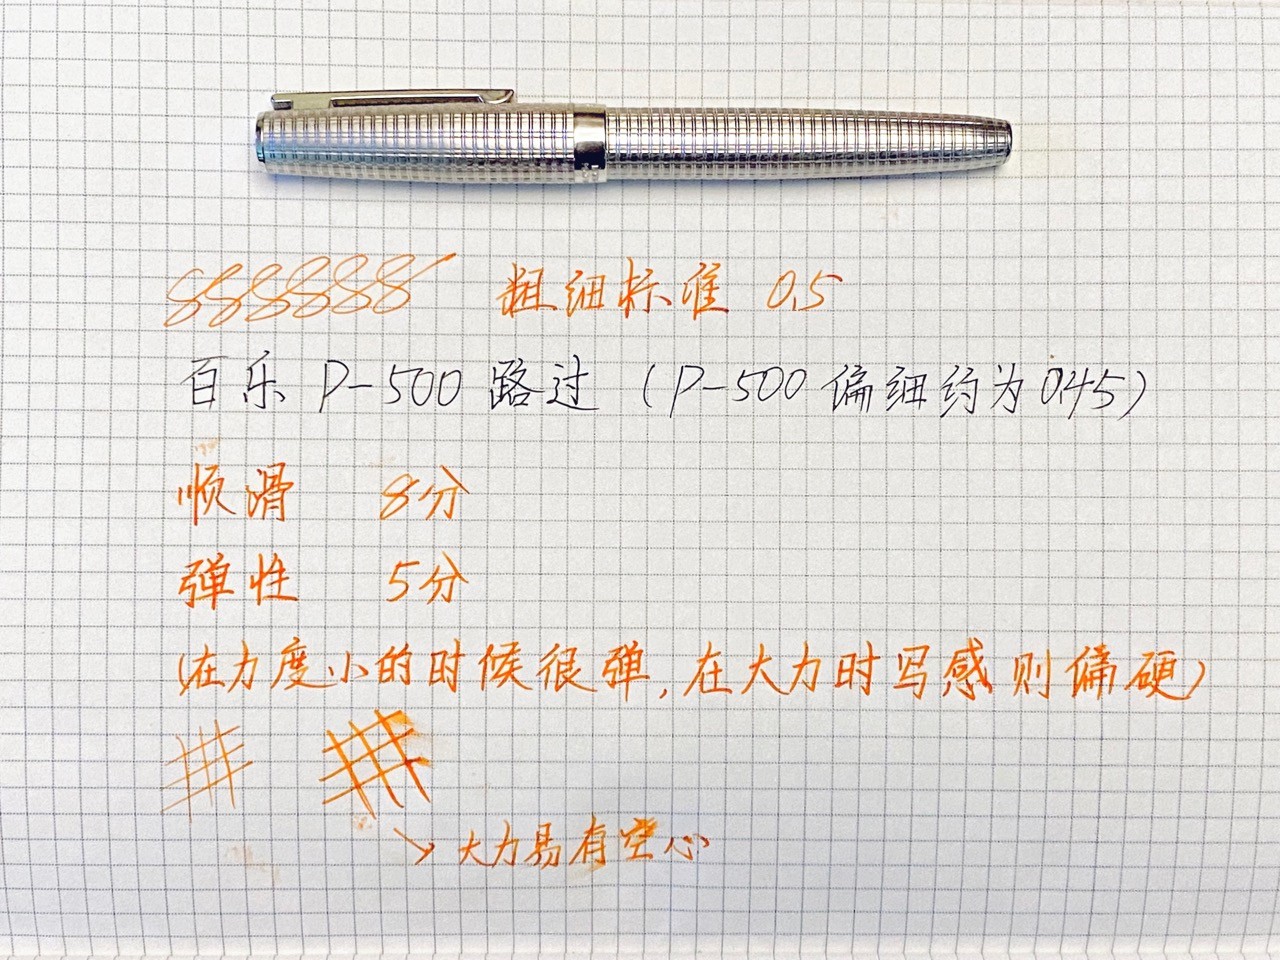 888888 粗细标准 0.5
百乐 P-500 路过 (P-500 偏细约为0.45)
顺滑 8分
弹性 5分
(在力度小的时候很弹,在大力时写感则偏硬)
→ 大力易有空心